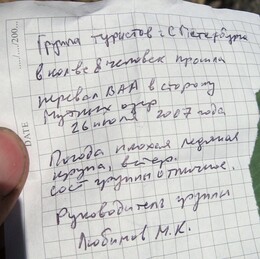 .../.../200...
DATE
Группа туристов г. С Петербурга
в кол-ве 8 человек прошла
перевал ВАА в сторону
Мутных озер
26 июля 2007 года
Погода плохая ледяная
крупа, ветер.
сост группы отличное.
Руководитель группы
Любимов М.К.